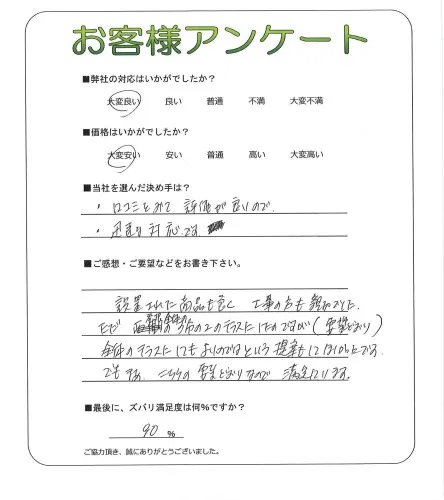 お客様アンケート
■弊社の対応はいかがでしたか?
大変良い 良い 普通 不満 大変不満
■価格はいかがでしたか?
大変安い 安い 普通 高い 大変高い
■当社を選んだ決め手は?
・口コミをみて 評価が良いので。
・迅速な対応です。
■ご感想・ご要望などをお書き下さい。
設置された商品も良く 工事の方も親切でした。
ただ の3分の2のテラスにしたのですが(要望どおり)
全体のテラスにしてもよいのではという提案もしてほしかったです。
でもまあ、こちらの要望どおりなので 満足しています。
■最後に、ズバリ満足度は何%ですか?
90 %
ご協力頂き、誠にありがとうございました。